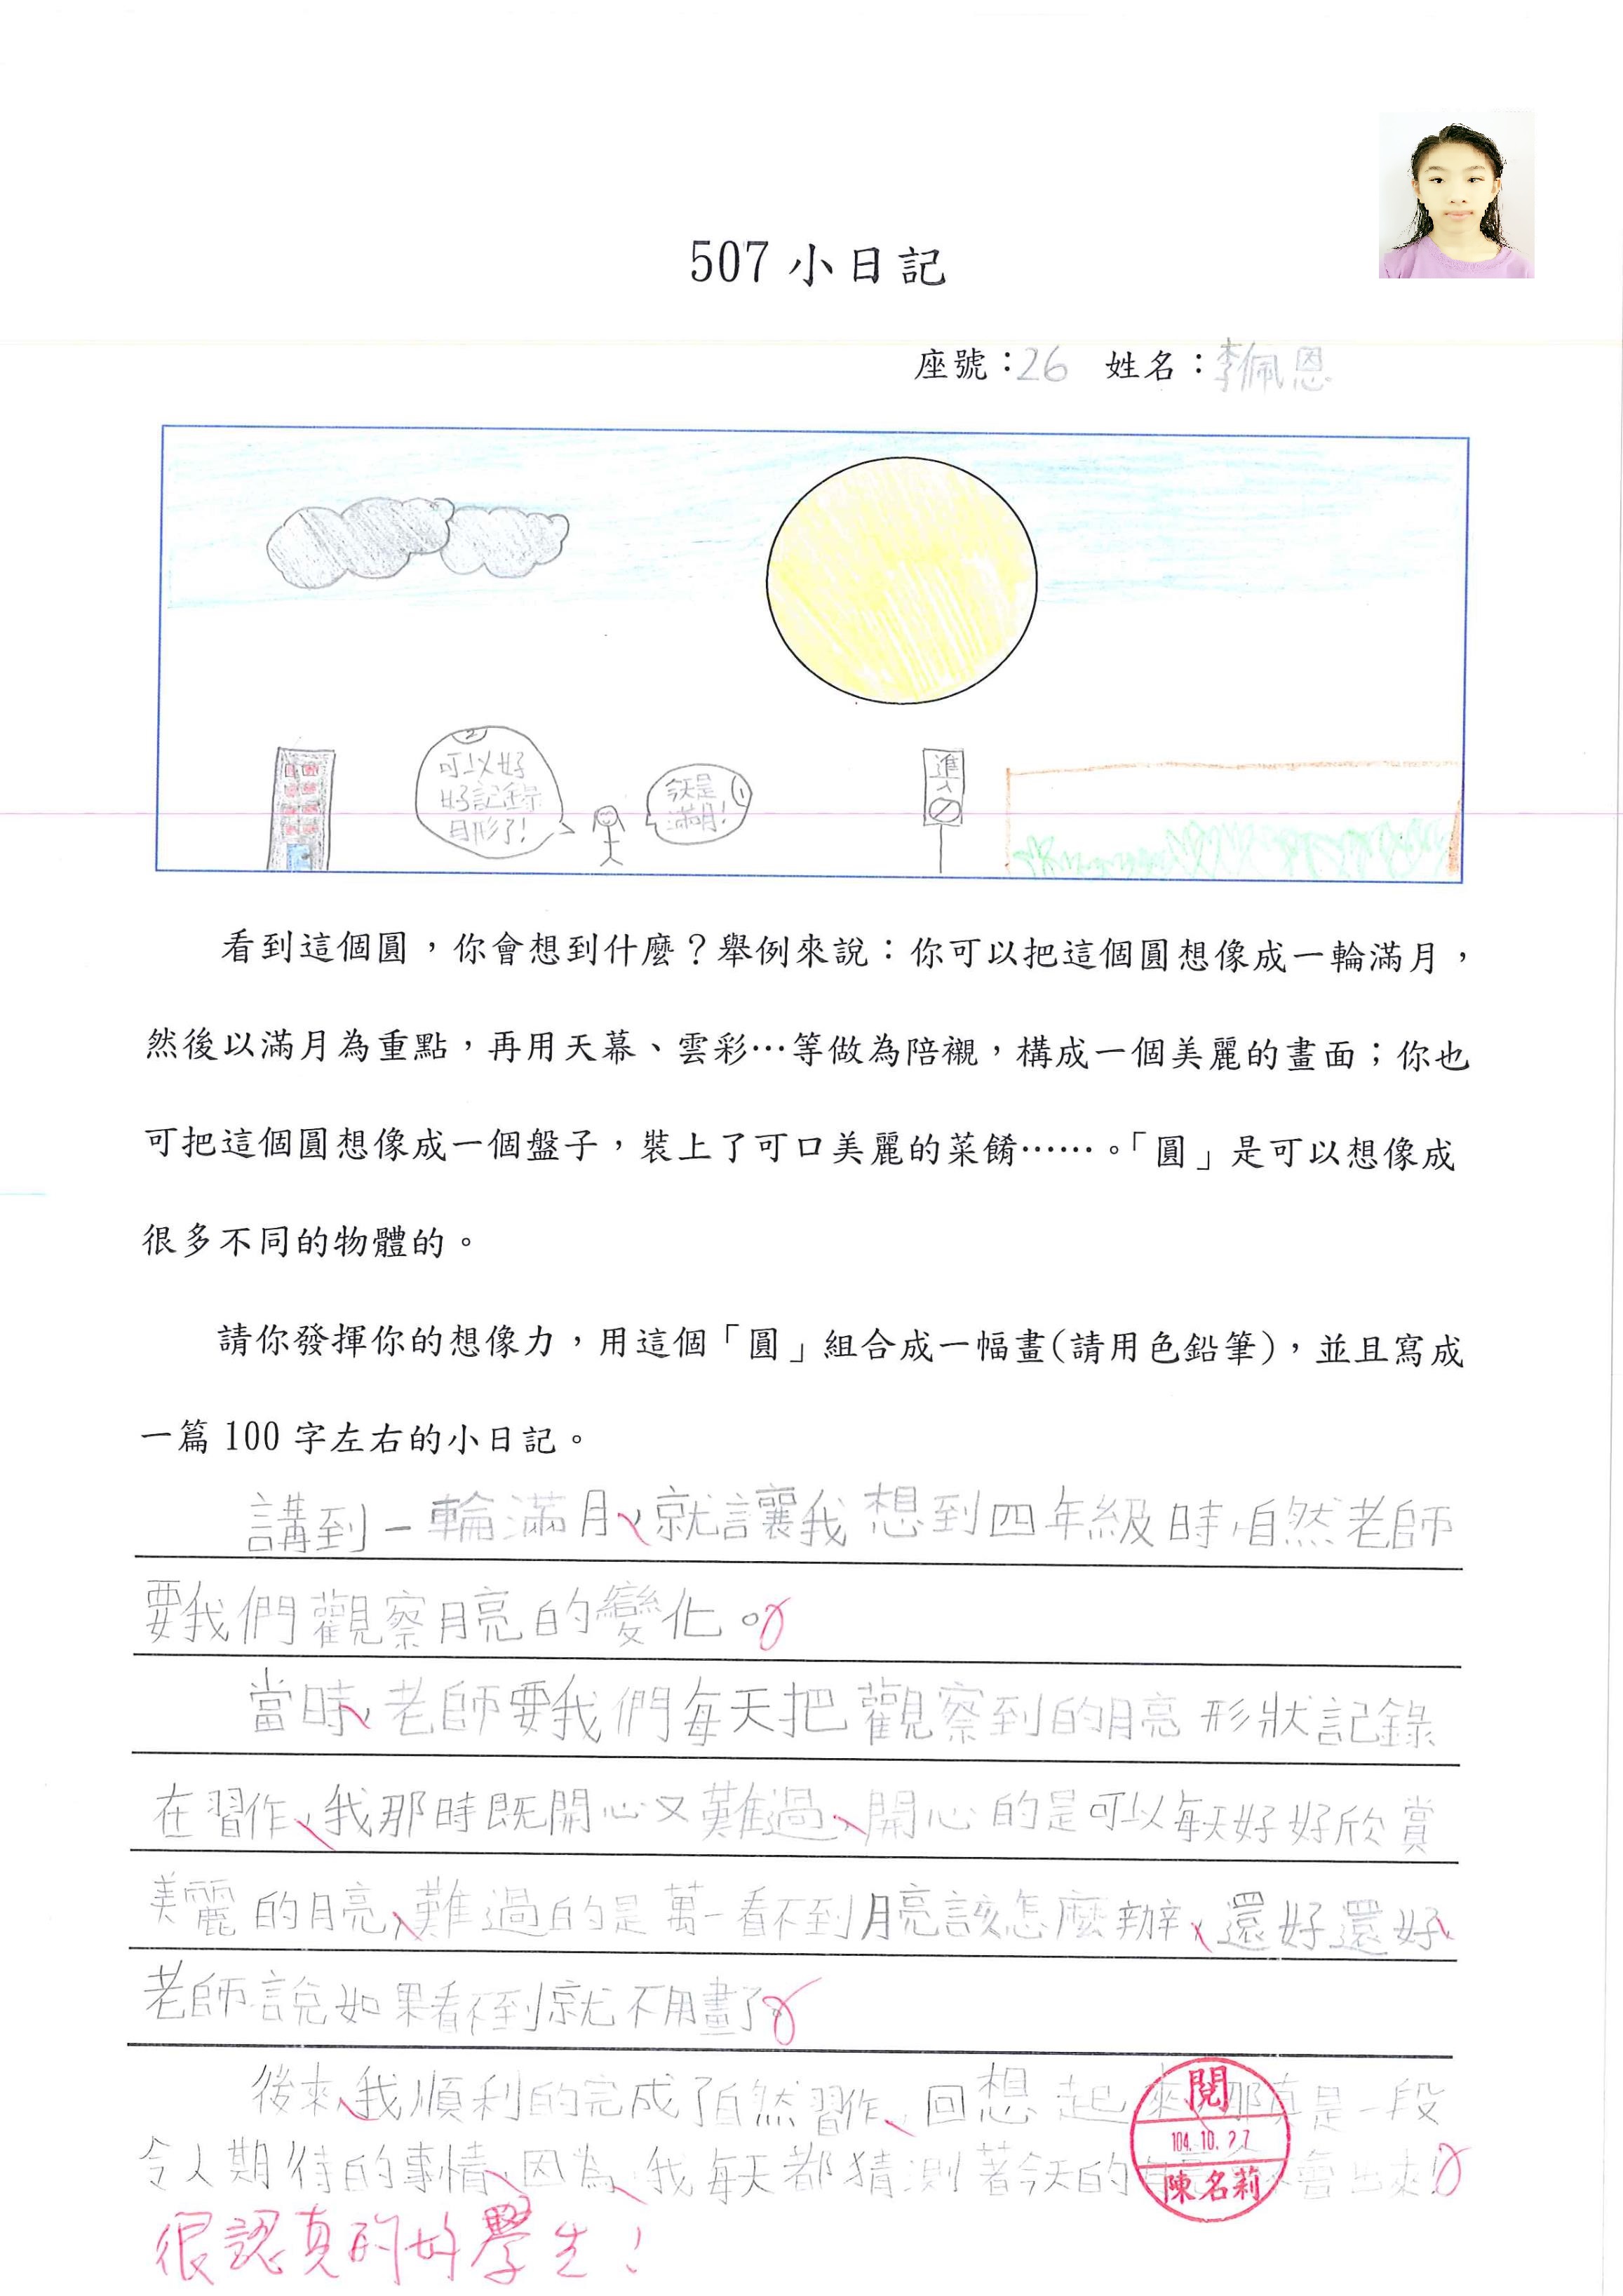 507 小日記
座號：26 姓名：李佩恩
②
可以好
好記錄
月形了！
今天是
滿月！
①
進
入
看到這個圓，你會想到什麼？舉例來說：你可以把這個圓想像成一輪滿月，
然後以滿月為重點，再用天幕、雲彩…等做為陪襯，構成一個美麗的畫面；你也
可把這個圓想像成一個盤子，裝上了可口美麗的菜餚……。「圓」是可以想像成
很多不同的物體的。
請你發揮你的想像力，用這個「圓」組合成一幅畫(請用色鉛筆)，並且寫成
一篇 100 字左右的小日記。
講到一輪滿月，就讓我想到四年級時自然老師
要我們觀察月亮的變化。
當時，老師要我們每天把觀察到的月亮形狀記錄
在習作，我那時既開心又難過，開心的是可以每天好好欣賞
美麗的月亮，難過的是萬一看不到月亮該怎麼辦，還好還好，
老師說如果看不到就不用畫了。
後來，我順利的完成了自然習作，回想起來，那真是一段
令人期待的事情，因為，我每天都猜測著今天的會出來！
閱
104.10.27
陳名莉
很認真的好學生！